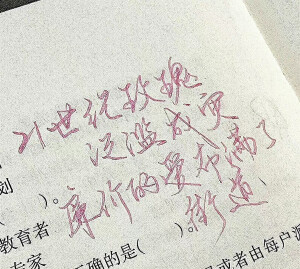 21世纪玫瑰
泛滥成灾
廉价的爱布满了
街道
划
(  )。
教育者
(  )。
专家
确的是(  )。
或者由每户派